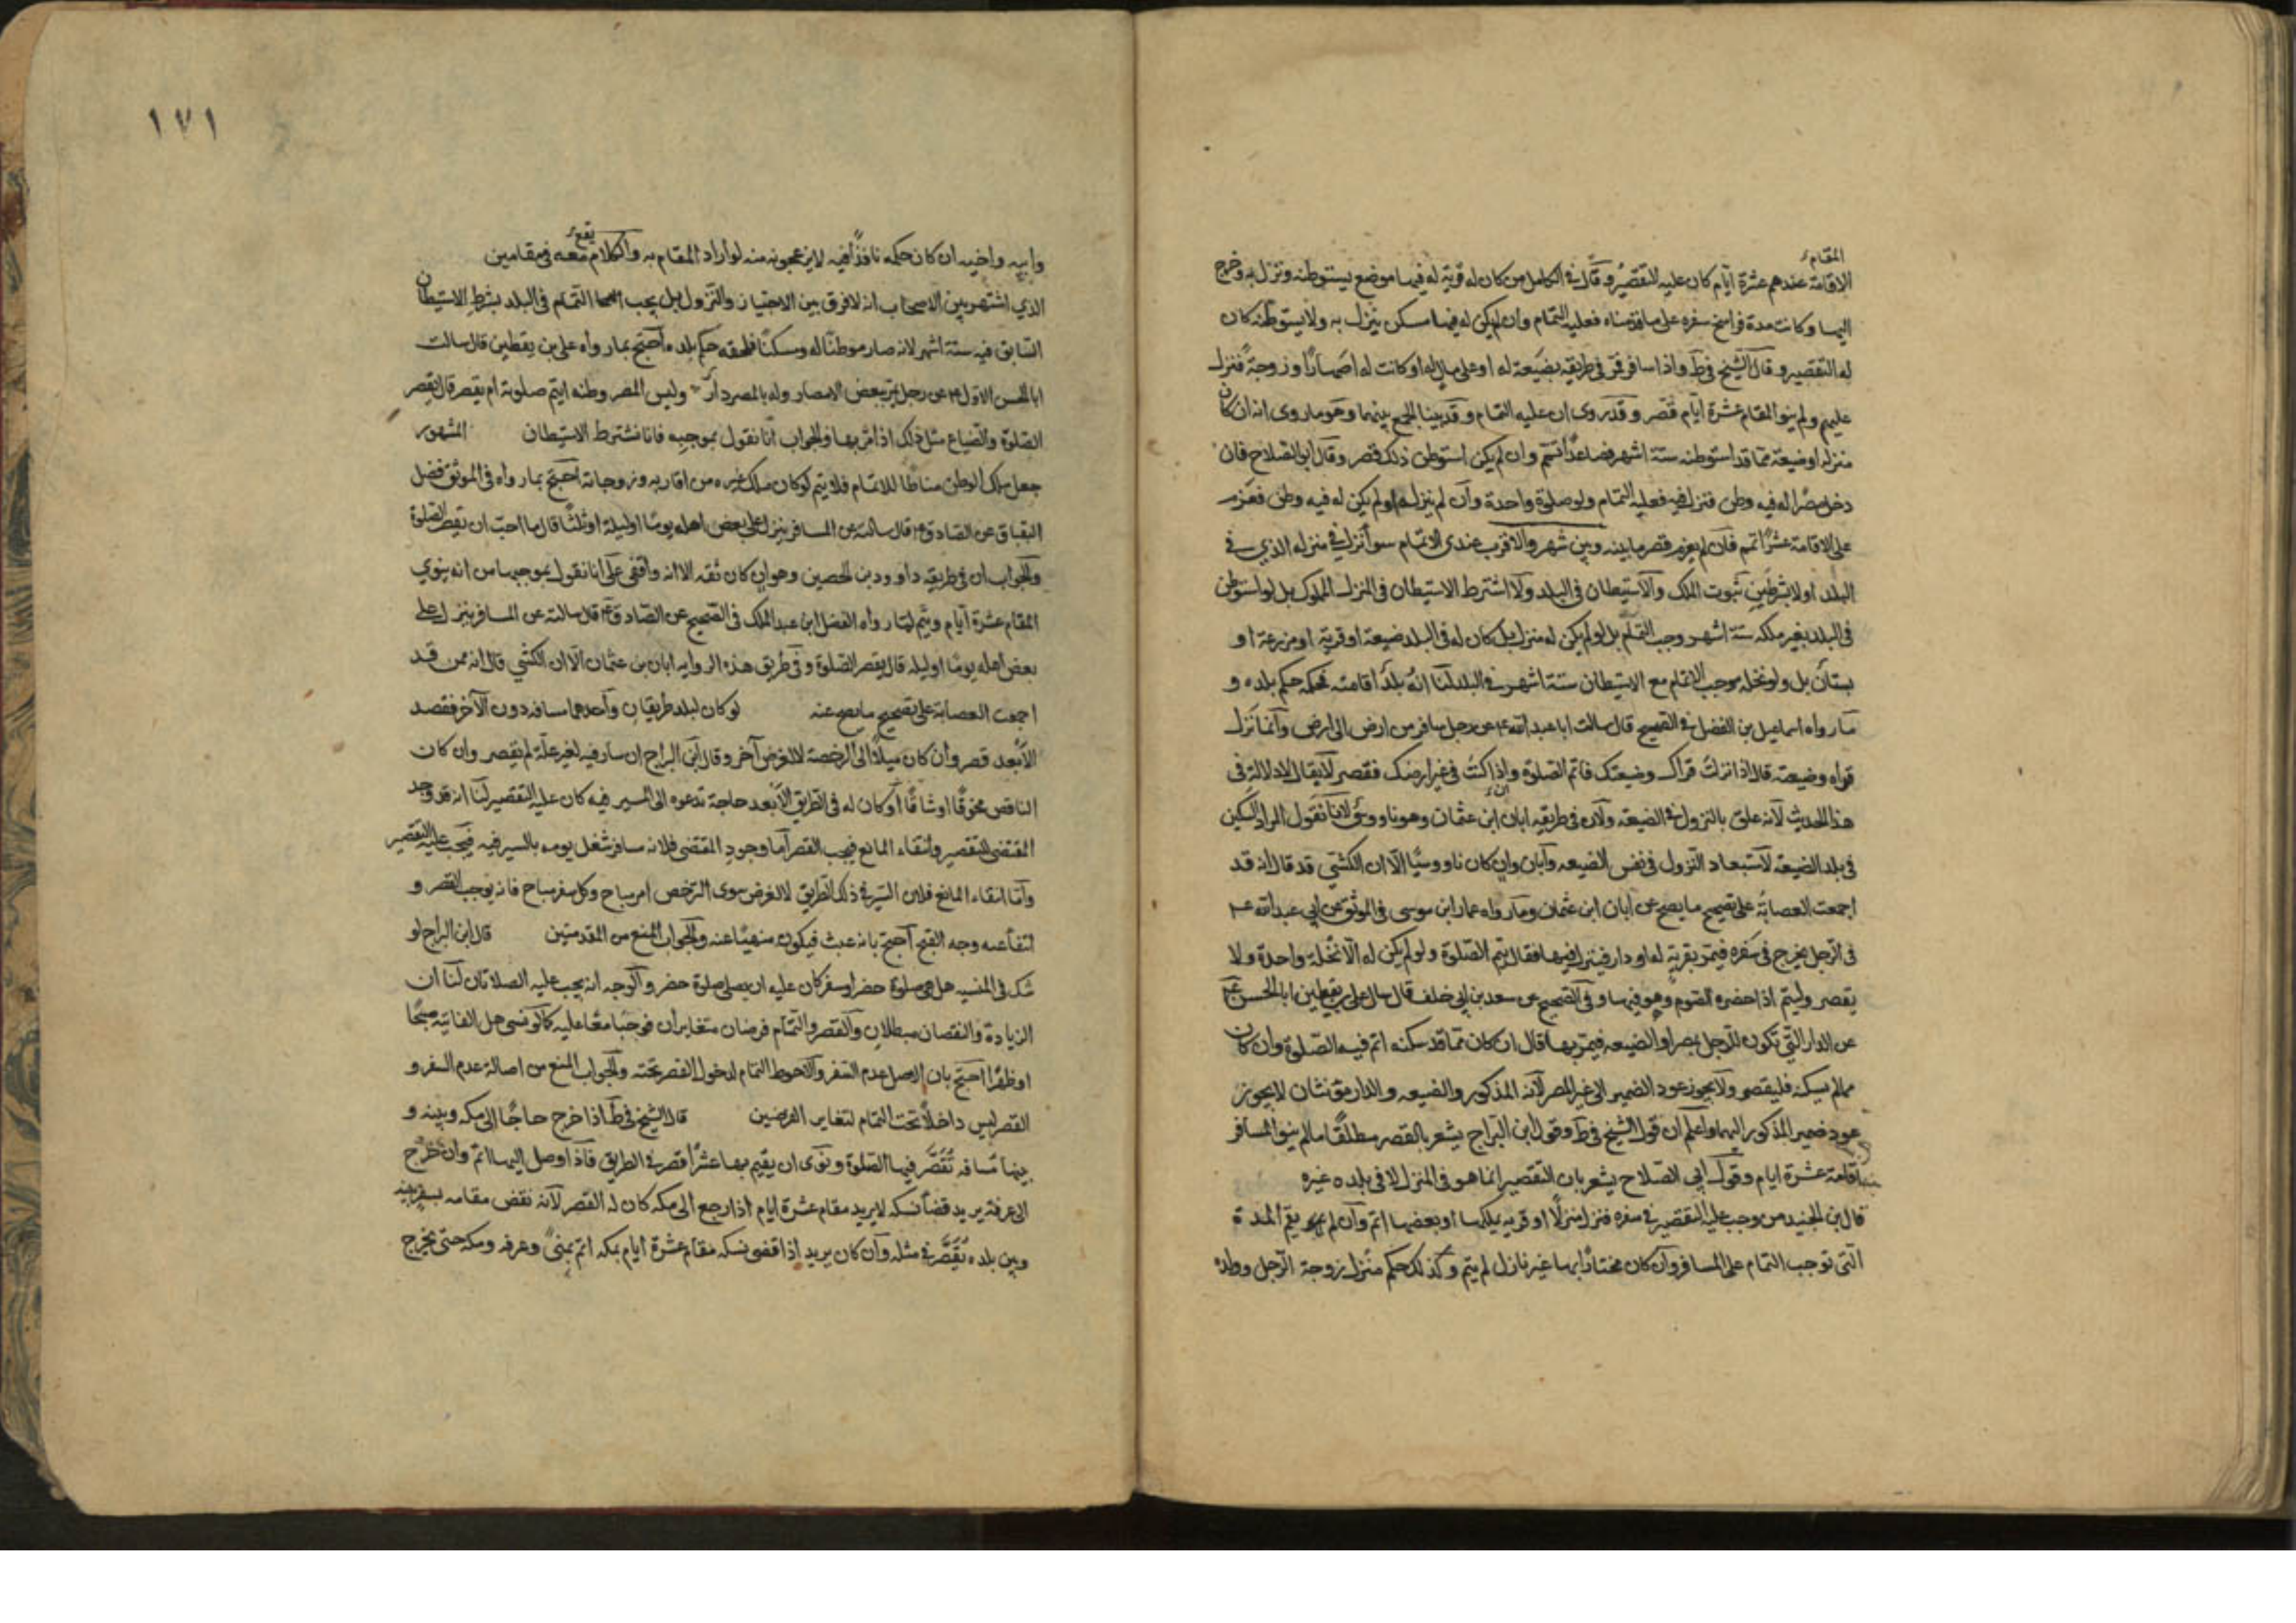 المقام
الاقامة عندهم عشرة ايام كان عليه التقصير وقال في الكامل من كان له قرية له فيها موضع يستوطنه ونزل به وخرج
اليها وكانت مدة فراسخ سفره على ما قدمناه فعليه التمام وان لم يكن له فيها مسكن ينزل به ولا يستوطنه كان
له التقصير وقال الشيخ في ط واذا سافر فمر في طريقه بضيعة له او على مال له او كانت له اصهارا او زوجة فنزل
عليهم ولم ينو المقام عشرة ايام قصر وقد روى ان عليه التمام وقد بينا الجمع بينهما وهو ما روى انه ان كان
منزله او ضيعته مما قد استوطنه ستة اشهر فصاعدا تمم وان لم يكن استوطن ذلك قصر وقال ابو الصلاح فان
دخل مصرا له فيه وطن فنزل فيه فعليه التمام ولو صلوة واحدة وان لم ينزله او لم يكن له فيه وطن فعزم
على الاقامة عشرا تمم فان لم يعزم قصر ما بينه وبين شهر والاقرب عندي الاتمام سواء نزل في منزله الذي في
البلد اولا بشرطين ثبوت الملك والاستيطان في البلد ولا اشترط الاستيطان في المنزل المملوك بل لو استوطن
في البلد بغير ملكه ستة اشهر وجب التمام بل لو لم يكن له منزل بل كان له في البلد ضيعة او قرية او مزرعة او
بستان بل ولو نخلة وجب الاتمام مع الاستيطان ستة اشهر في البلد لنا انه بلد اقامته فحكمه حكم بلده و
ما رواه اسماعيل بن الفضل في الصحيح قال سالت ابا عبد الله ع عن رجل سافر من ارض الى ارض وانما نزل
قراه وضيعته قال اذا نزلت قراك وضيعتك فاتم الصلوة واذا كنت في غير ارضك فقصر لا يقال لا دلالة في
هذا الحديث لانه علق بالنزول في الضيعة ولان في طريقه ابان ابن عثمان وهو ناووسى لانا نقول المراد السكن
في بلد الضيعة لاستبعاد النزول في نفس الضيعه وابان وان كان ناووسيا الا ان الكشي قد قال انه قد
اجمعت العصابة على تصحيح ما يصح عن ابان ابن عثمان وما رواه عمار ابن موسى في الموثق عن ابي عبد الله ع
في الرجل يخرج في سفره فيمر بقرية له او دار فينزل فيها فقال يتم الصلوة ولو لم يكن له الا نخلة واحدة ولا
يقصر وليتم اذا حضره الصوم وهو فيها وفي الصحيح عن سعد بن ابي خلف قال سال علي بن يقطين ابا الحسن ع
عن الدار التي تكون للرجل بمصر او الضيعه فيمر بها قال ان كان مما قد سكنه اتم فيه الصلوة وان كان
مما لم يسكنه فليقصر ولا يجوز عود الضمير الى غير المصر لانه المذكور والضيعه والدار مؤنثان لا يجوز
عود ضمير المذكور اليهما واعلم ان قول الشيخ في ط وقول ابن البراج يشعر بالقصر مطلقا ما لم ينو المسافر
اقامة عشرة ايام وقول ابي الصلاح يشعر بان التقصير انما هو في المنزل لا في بلده غيره
قال بن الجنيد من وجب عليه التقصير في سفره فنزل منزلا او قريه يملكها او بعضها اتم وان لم يقم المدة
التي توجب التمام على المسافر وان كان مجتازا بها غير نازل لم يتم وكذلك حكم منزل زوجة الرجل وولده
١٧١
يقع
وابيه واخيه ان كان حكمه نافذا فيه لا يزعجونه منه لو اراد المقام به والكلام معه في مقامين
الذي اشتهر بين الاصحاب انه لا فرق بين الاجتياز والنزول بل يجب التمام في البلد بشرط الاستيطان
السابق فيه ستة اشهر لانه صار موطنا له ومسكنا فلحقه حكم بلده احتج بما رواه علي بن يقطين قال سالت
ابا الحسن الاول ع عن رجل يمر ببعض الامصار وله بالمصر دار وليس المصر وطنه ايتم صلوته ام يقصر قال يقصر
الصلوة والضياع مثل ذلك اذا مر بها والجواب انا نقول بموجبه فانا نشترط الاستيطان المشهور
جعل ملك الوطن مناطا للاتمام فلا يتم لو كان ملك غيره من اقاربه وزوجاته احتج بما رواه في الموثق فضل
البقباق عن الصادق ع قال سالته عن المسافر ينزل على بعض اهله يوما او ليلة او ثلثا قال ما احب ان يقصر الصلوة
والجواب ان في طريقه داوود بن الحصين وهو ان كان ثقه الا انه واقفى على انا نقول بموجبها من انه ينوي
المقام عشرة ايام ويتم لما رواه الفضل ابن عبد الملك في الصحيح عن الصادق ع قال سالته عن المسافر ينزل على
بعض اهله يوما او ليله قال يقصر الصلوة وفي طريق هذه الروايه ابان بن عثمان الا ان الكشي قال انه ممن قد
اجمعت العصابة على تصحيح ما يصح عنه لو كان لبلد طريقان واحدهما مسافه دون الاخر فقصد
الابعد قصر وان كان ميلا الى الرخصة لا لغرض آخر وقال ابن البراج ان سار فيه لغير علة لم يقصر وان كان
الناقص مخوفا او شاقا او كان له في الطريق الابعد حاجة تدعوه الى المسير فيه كان عليه التقصير لنا انه قد وجد
المقتضى للتقصير وانتفاء المانع فيجب القصر اما وجود المقتضى فلانه مسافر شغل يومه بالسير فيه فيجب عليه التقصير
واما انتفاء المانع فلان السير في ذلك الطريق لا لغرض سوى الترخص امر مباح وكل سفر مباح فانه يوجب القصر و
انتفاء عنه وجه القبح احتج بانه عبث فيكون منهيا عنه والجواب المنع من المقدمتين قال ابن البراج لو
شك في المنسيه هل هي صلوة حضر او سفر كان عليه ان يصلي صلوة حضر والوجه انه يجب عليه الصلاتان لنا ان
الزيادة والنقصان مبطلان والقصر والتمام فرضان متغايران فوجبا معا عليه كما لو نسى هل الفائته صبحا
او ظهرا احتج بان الاصل عدم السفر والاحوط التمام لدخول القصر تحته والجواب المنع من اصالة عدم السفر و
القصر ليس داخلا تحت التمام لتغاير الفرضين قال الشيخ في ط اذا خرج حاجا الى مكه وبينه و
بينها مسافه تقصر فيها الصلوة ونوى ان يقيم بها عشرا قصر في الطريق فاذا وصل اليها اتم وان خرج
الى عرفة يريد قضا نسكه لا يريد مقام عشرة ايام اذا رجع الى مكه كان له القصر لانه نقض مقامه بسفر بينه
وبين بلده يقصر في مثله وان كان يريد اذا قضى نسكه مقام عشرة ايام بمكه اتم بمنى وعرفه ومكه حتى يخرج